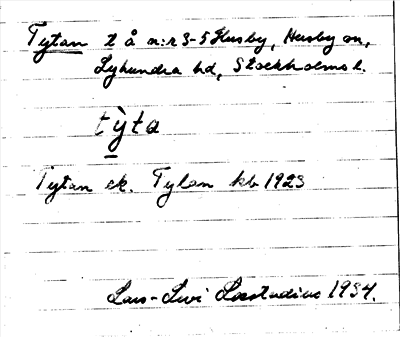 Tytan t å a:r 3-5 Husby, Husby sn,
Lyhundra hd, Stockholms l.
tỳta
Tytan ek. Tylan kb 1923
Lars-Levi Læstadius 1934.